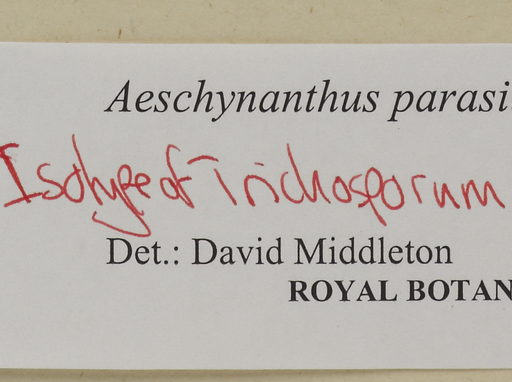 Aeschynanthus parasi
Isotype of Trichosporum
Det.: David Middleton
ROYAL BOTAN